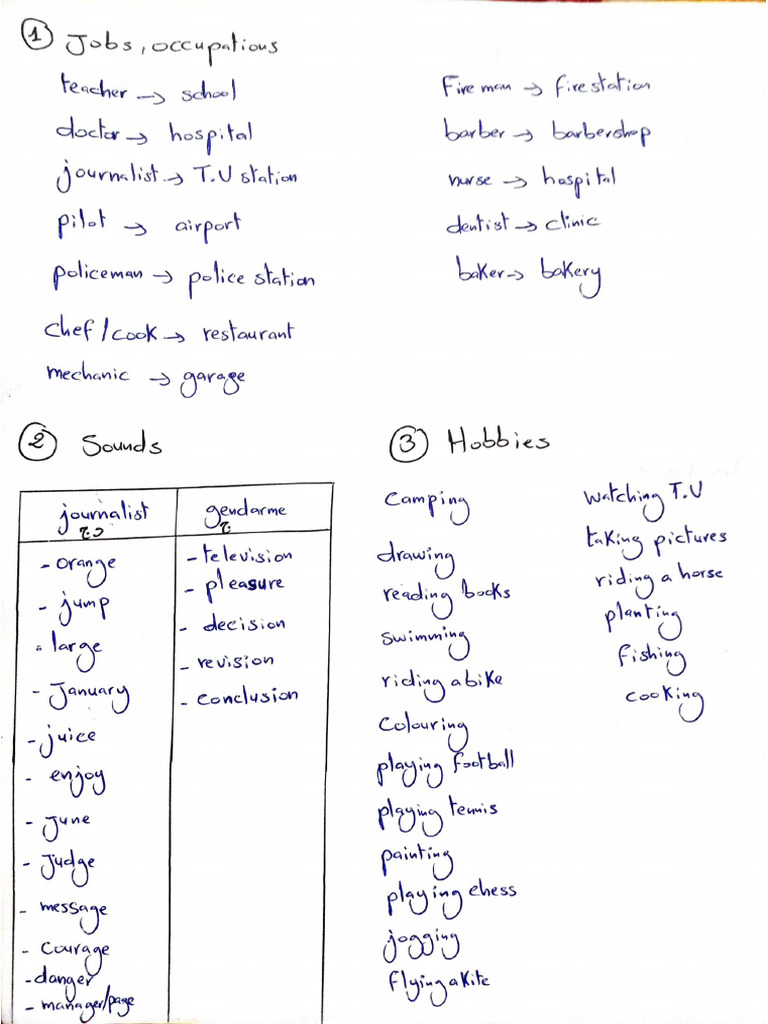 1 Jobs, occupations
teacher → school
doctor → hospital
journalist → T.V station
pilot → airport
policeman → police station
chef/cook → restaurant
mechanic → garage
Fireman → firestation
barber → barbershop
nurse → hospital
dentist → clinic
baker → bakery
2 Sounds
journalist
- orange
- jump
- large
- January
- juice
- enjoy
- June
- Judge
- message
- Courage
- danger
- manager/page
gendarme
- television
- pleasure
- decision
- revision
- conclusion
3 Hobbies
Camping
drawing
reading books
swimming
riding a bike
Colouring
playing football
playing tennis
painting
playing chess
jogging
flying a kite
watching T.V
taking pictures
riding a horse
planting
fishing
cooking